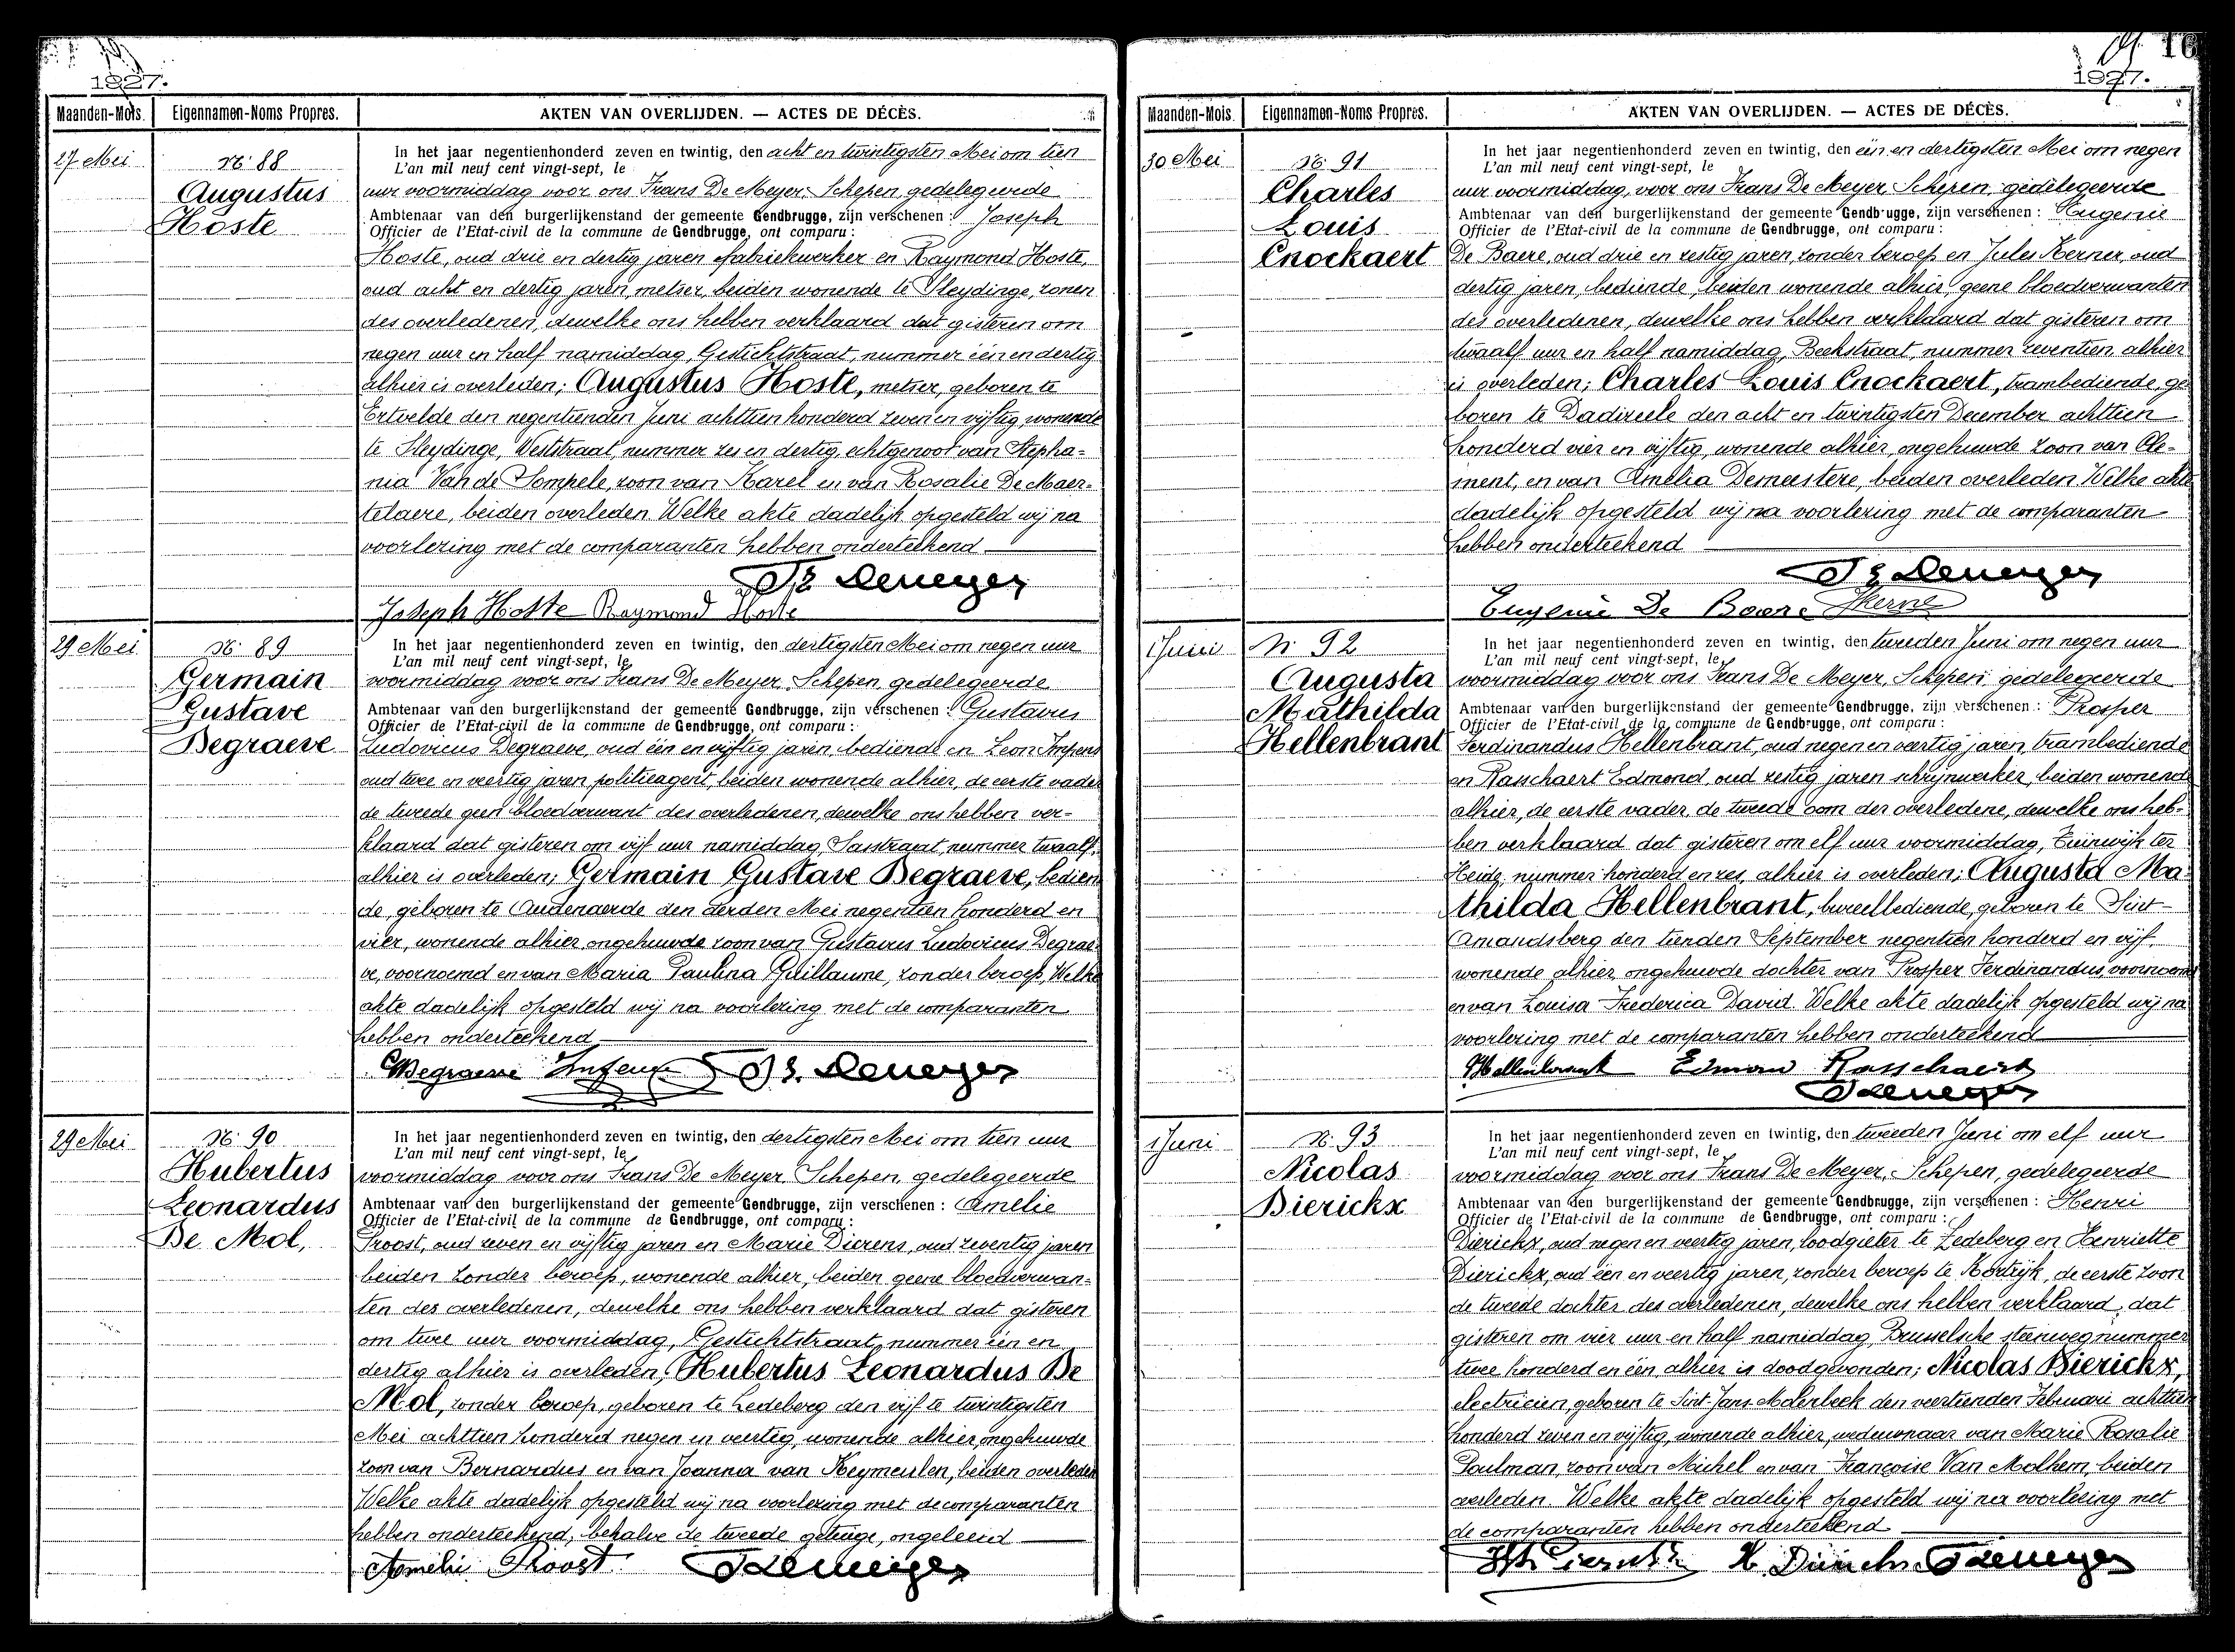 1927.
Maanden-Mois. Eigennamen-Noms Propres. AKTEN VAN OVERLIJDEN. — ACTES DE DÉCÈS.
27 Mei
N° 88
Augustus
Hoste
In het jaar negentienhonderd zeven en twintig, den acht en twintigsten Mei om tien
L'an mil neuf cent vingt-sept, le
uur voormiddag voor ons Frans De Meyer, Schepen, gedelegeerde
Ambtenaar van den burgerlijkenstand der gemeente Gendbrugge, zijn verschenen : Joseph
Officier de l'Etat-civil de la commune de Gendbrugge, ont comparu :
Hoste, oud drie en dertig jaren fabriekwerker en Raymond Hoste,
oud acht en dertig jaren, metser, beiden wonende te Sleydinge, zonen
des overledenen, dewelke ons hebben verklaard dat gisteren om
negen uur en half namiddag, Gestichtstraat, nummer één en dertig
alhier is overleden; Augustus Hoste, metser, geboren te
Ertvelde den negentienden Juni achttien honderd zeven en vijftig, wonende
te Sleydinge, Weststraat, nummer zes en dertig, echtgenoot van Stepha=
nia Van de Sompele, zoon van Karel en van Rosalie De Maer=
telaere, beiden overleden. Welke akte dadelijk opgesteld wij na
voorlezing met de comparanten hebben onderteekend
Fs Demeyer
Joseph Hoste Raymond Hoste
29 Mei
N° 89
Germain
Gustave
Degraeve
In het jaar negentienhonderd zeven en twintig, den dertigsten Mei om negen uur
L'an mil neuf cent vingt-sept, le
voormiddag voor ons Frans De Meyer, Schepen, gedelegeerde
Ambtenaar van den burgerlijkenstand der gemeente Gendbrugge, zijn verschenen : Gustavus
Officier de l'Etat-civil de la commune de Gendbrugge, ont comparu :
Ludovicus Degraeve, oud één en vijftig jaren, bediende en Leon Impens
oud twee en veertig jaren, politieagent, beiden wonende alhier, de eerste vader
de tweede geen bloedverwant des overledenen, dewelke ons hebben ver-
klaard dat gisteren om vijf uur namiddag, Sasstraat, nummer twaalf,
alhier is overleden; Germain Gustave Degraeve, bedien
de, geboren te Audenaerde den derden Mei negentien honderd en
vier, wonende alhier, ongehuwde zoon van Gustavus Ludovicus Degrae
ve, voornoemd en van Maria Paulina Guillaume, zonder beroep, Welke
akte dadelijk opgesteld wij na voorlezing met de comparanten
hebben onderteekend
Degraeve Impens Fs. Demeyer
29 Mei
N° 90
Hubertus
Leonardus
De Mol,
In het jaar negentienhonderd zeven en twintig, den dertigsten Mei om tien uur
L'an mil neuf cent vingt-sept, le
voormiddag voor ons Frans De Meyer, Schepen, gedelegeerde
Ambtenaar van den burgerlijkenstand der gemeente Gendbrugge, zijn verschenen : Amelie
Officier de l'Etat-civil de la commune de Gendbrugge, ont comparu :
Proost, oud zeven en vijftig jaren en Marie Dierens, oud zeventig jaren
beiden zonder beroep, wonende alhier, beiden geene bloedverwan=
ten des overledenen, dewelke ons hebben verklaard dat gisteren
om twee uur voormiddag, Gestichtstraat, nummer één en
dertig alhier is overleden; Hubertus Leonardus De
Mol, zonder beroep, geboren te Ledeberg den vijf te twintigsten
Mei achttien honderd negen en veertig, wonende alhier, ongehuwde
zoon van Bernardus en van Joanna van Keymeulen, beiden overleden
Welke akte dadelijk opgesteld wij na voorlezing met de comparanten
hebben onderteekend, behalve de tweede getuige, ongeleerd
Amelie Proost Fs Demeyer
16
1927.
Maanden-Mois. Eigennamen-Noms Propres. AKTEN VAN OVERLIJDEN. — ACTES DE DÉCÈS.
30 Mei
N° 91
Charles
Louis
Cnockaert
In het jaar negentienhonderd zeven en twintig, den één en dertigsten Mei om negen
L'an mil neuf cent vingt-sept, le
uur voormiddag, voor ons Frans De Meyer, Schepen, gedelegeerde
Ambtenaar van den burgerlijkenstand der gemeente Gendbrugge, zijn verschenen : Eugenie
Officier de l'Etat-civil de la commune de Gendbrugge, ont comparu :
De Baere, oud drie en zestig jaren, zonder beroep en Jules Kerner, oud
dertig jaren, bediende, beiden wonende alhier, geene bloedverwanten
des overledenen, dewelke ons hebben verklaard dat gisteren om
twaalf uur en half namiddag, Beekstraat, nummer zeventien, alhier
is overleden; Charles Louis Cnockaert, trambediende, ge
boren te Dadizeele den acht en twintigsten December achttien
honderd vier en vijftig, wonende alhier, ongehuwde zoon van Cle-
ment, en van Amelia Demeestere, beiden overleden. Welke akte
dadelijk opgesteld wij na voorlezing met de comparanten
hebben onderteekend
Fs Demeyer
Eugenie De Baere JKerner
1 Juni
N° 92
Augusta
Mathilda
Hellenbrant
In het jaar negentienhonderd zeven en twintig, den tweeden Juni om negen uur
L'an mil neuf cent vingt-sept, le
voormiddag voor ons Frans De Meyer, Schepen, gedelegeerde
Ambtenaar van den burgerlijkenstand der gemeente Gendbrugge, zijn verschenen : Prosper
Officier de l'Etat-civil de la commune de Gendbrugge, ont comparu :
Ferdinandus Hellenbrant, oud negen en veertig jaren, trambediende
en Rasschaert Edmond, oud zestig jaren schrijnwerker, beiden wonende
alhier, de eerste vader, de tweede oom der overledene, dewelke ons heb-
ben verklaard dat gisteren om elf uur voormiddag, Tuinwijk ter
Heide, nummer honderd en zes, alhier is overleden; Augusta Ma-
thilda Hellenbrant, bureelbediende, geboren te Sint-
Amandsberg den tienden September negentien honderd en vijf,
wonende alhier, ongehuwde dochter van Prosper Ferdinandus, voornoemd
en van Louisa Frederica David. Welke akte dadelijk opgesteld wij na
voorlezing met de comparanten hebben onderteekend
PHellenbrant Edmond Rasschaert
FsDemeyer
1 Juni
N° 93
Nicolas
Dierickx
In het jaar negentienhonderd zeven en twintig, den tweeden Juni om elf uur
L'an mil neuf cent vingt-sept, le
voormiddag voor ons Frans De Meyer, Schepen, gedelegeerde
Ambtenaar van den burgerlijkenstand der gemeente Gendbrugge, zijn verschenen : Henri
Officier de l'Etat-civil de la commune de Gendbrugge, ont comparu :
Dierickx, oud negen en veertig jaren, loodgieter te Ledeberg en Henriette
Dierickx, oud één en veertig jaren, zonder beroep te Kortrijk, de eerste zoon
de tweede dochter des overledenen, dewelke ons hebben verklaard, dat
gisteren om vier uur en half namiddag, Brusselsche steenweg nummer
twee honderd en één, alhier is dood gevonden; Nicolas Dierickx,
electricien, geboren te Sint-Jans-Molenbeek den veertienden Februari achttien
honderd zeven en vijftig, wonende alhier, weduwnaar van Marie Rosalie
Poulman, zoon van Michel en van Françoise Van Molhem, beiden
overleden. Welke akte dadelijk opgesteld wij na voorlezing met
de comparanten hebben onderteekend
H. Dierickx FsDemeyer